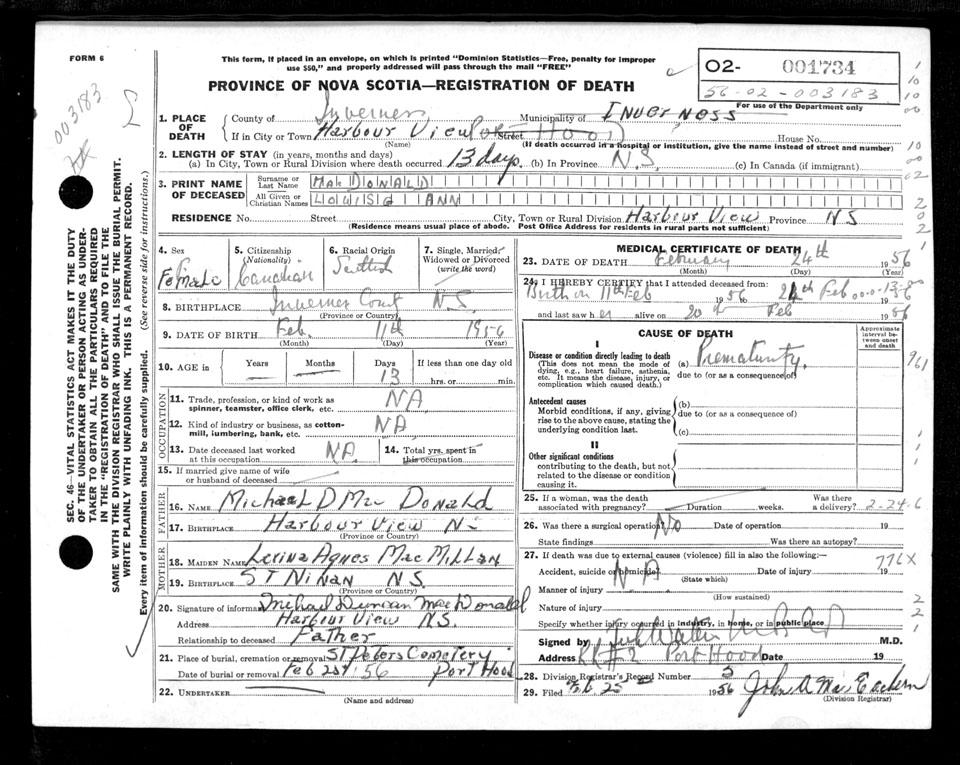 FORM 6
This form, if placed in an envelope, on which is printed "Dominion Statistics—Free, penalty for improper
use $50," and properly addressed will pass through the mail "FREE"
O2- 001734
56-02-003183
For use of the Department only
003183
PROVINCE OF NOVA SCOTIA—REGISTRATION OF DEATH
SEC. 46—VITAL STATISTICS ACT MAKES IT THE DUTY
OF THE UNDERTAKER OR PERSON ACTING AS UNDER-
TAKER TO OBTAIN ALL THE PARTICULARS REQUIRED
IN THE "REGISTRATION OF DEATH" AND TO FILE THE
SAME WITH THE DIVISION REGISTRAR WHO SHALL ISSUE THE BURIAL PERMIT.
WRITE PLAINLY WITH UNFADING INK. THIS IS A PERMANENT RECORD.
Every item of information should be carefully supplied. (See reverse side for instructions.)
1. PLACE OF DEATH County of Inverness Municipality of INVERNESS
If in City or Town Harbour View Port Hood Street House No.
(Name) (If death occurred in a hospital or institution, give the name instead of street and number)
2. LENGTH OF STAY (in years, months and days)
(a) In City, Town or Rural Division where death occurred 13 days (b) In Province N.S. (c) In Canada (if immigrant)
3. PRINT NAME OF DECEASED Surname or Last Name MacDONALD
All Given or Christian Names LOUISE ANN
RESIDENCE No. Street City, Town or Rural Division Harbour View Province NS
(Residence means usual place of abode. Post Office Address for residents in rural parts not sufficient)
4. Sex Female
5. Citizenship (Nationality) Canadian
6. Racial Origin Scottish
7. Single, Married, Widowed or Divorced (write the word)
8. BIRTHPLACE Inverness County N.S.
(Province or Country)
9. DATE OF BIRTH Feb. 11th 1956
(Month) (Day) (Year)
10. AGE in Years Months Days 13 If less than one day old hrs. or min.
OCCUPATION
11. Trade, profession, or kind of work as spinner, teamster, office clerk, etc. NA
12. Kind of industry or business, as cotton-mill, lumbering, bank, etc. NA
13. Date deceased last worked at this occupation NA
14. Total yrs. spent in this occupation
15. If married give name of wife or husband of deceased
FATHER
16. NAME Michael D Mac Donald
17. BIRTHPLACE Harbour View NS
(Province or Country)
MOTHER
18. MAIDEN NAME Lexina Agnes MacMillan
19. BIRTHPLACE ST Ninan NS.
(Province or Country)
20. Signature of informant Michael Duncan MacDonald
Address Harbour View NS.
Relationship to deceased Father
21. Place of burial, cremation or removal St Peters Cemetery
Date of burial or removal Feb 25th 56 Port Hood
22. UNDERTAKER
(Name and address)
MEDICAL CERTIFICATE OF DEATH
23. DATE OF DEATH February 24th 1956
(Month) (Day) (Year)
24. I HEREBY CERTIFY that I attended deceased from:
Birth on 11th Feb 1956 24 Feb 1956
and last saw her alive on 20th Feb 1956
CAUSE OF DEATH
Approximate interval between onset and death
I
Disease or condition directly leading to death (a) Prematurity
(This does not mean the mode of dying, e.g., heart failure, asthenia, etc. It means the disease, injury, or complication which caused death.)
due to (or as a consequence of)
961
Antecedent causes
Morbid conditions, if any, giving rise to the above cause, stating the underlying condition last.
(b)
due to (or as a consequence of)
(c)
II
Other significant conditions
contributing to the death, but not related to the disease or condition causing it.
25. If a woman, was the death associated with pregnancy? Duration weeks. Was there a delivery? 2-24-6
26. Was there a surgical operation? No Date of operation 19
State findings Was there an autopsy?
27. If death was due to external causes (violence) fill in also the following:—
776X
Accident, suicide or homicide? NA Date of injury 19
(State which)
Manner of injury
(How sustained)
Nature of injury
Specify whether injury occurred in industry, in home, or in public place
Signed by M.D.
Address RR#2 Port Hood Date 19
28. Division Registrar's Record Number 3
29. Filed Feb 25 1956 John A MacEachern
(Division Registrar)